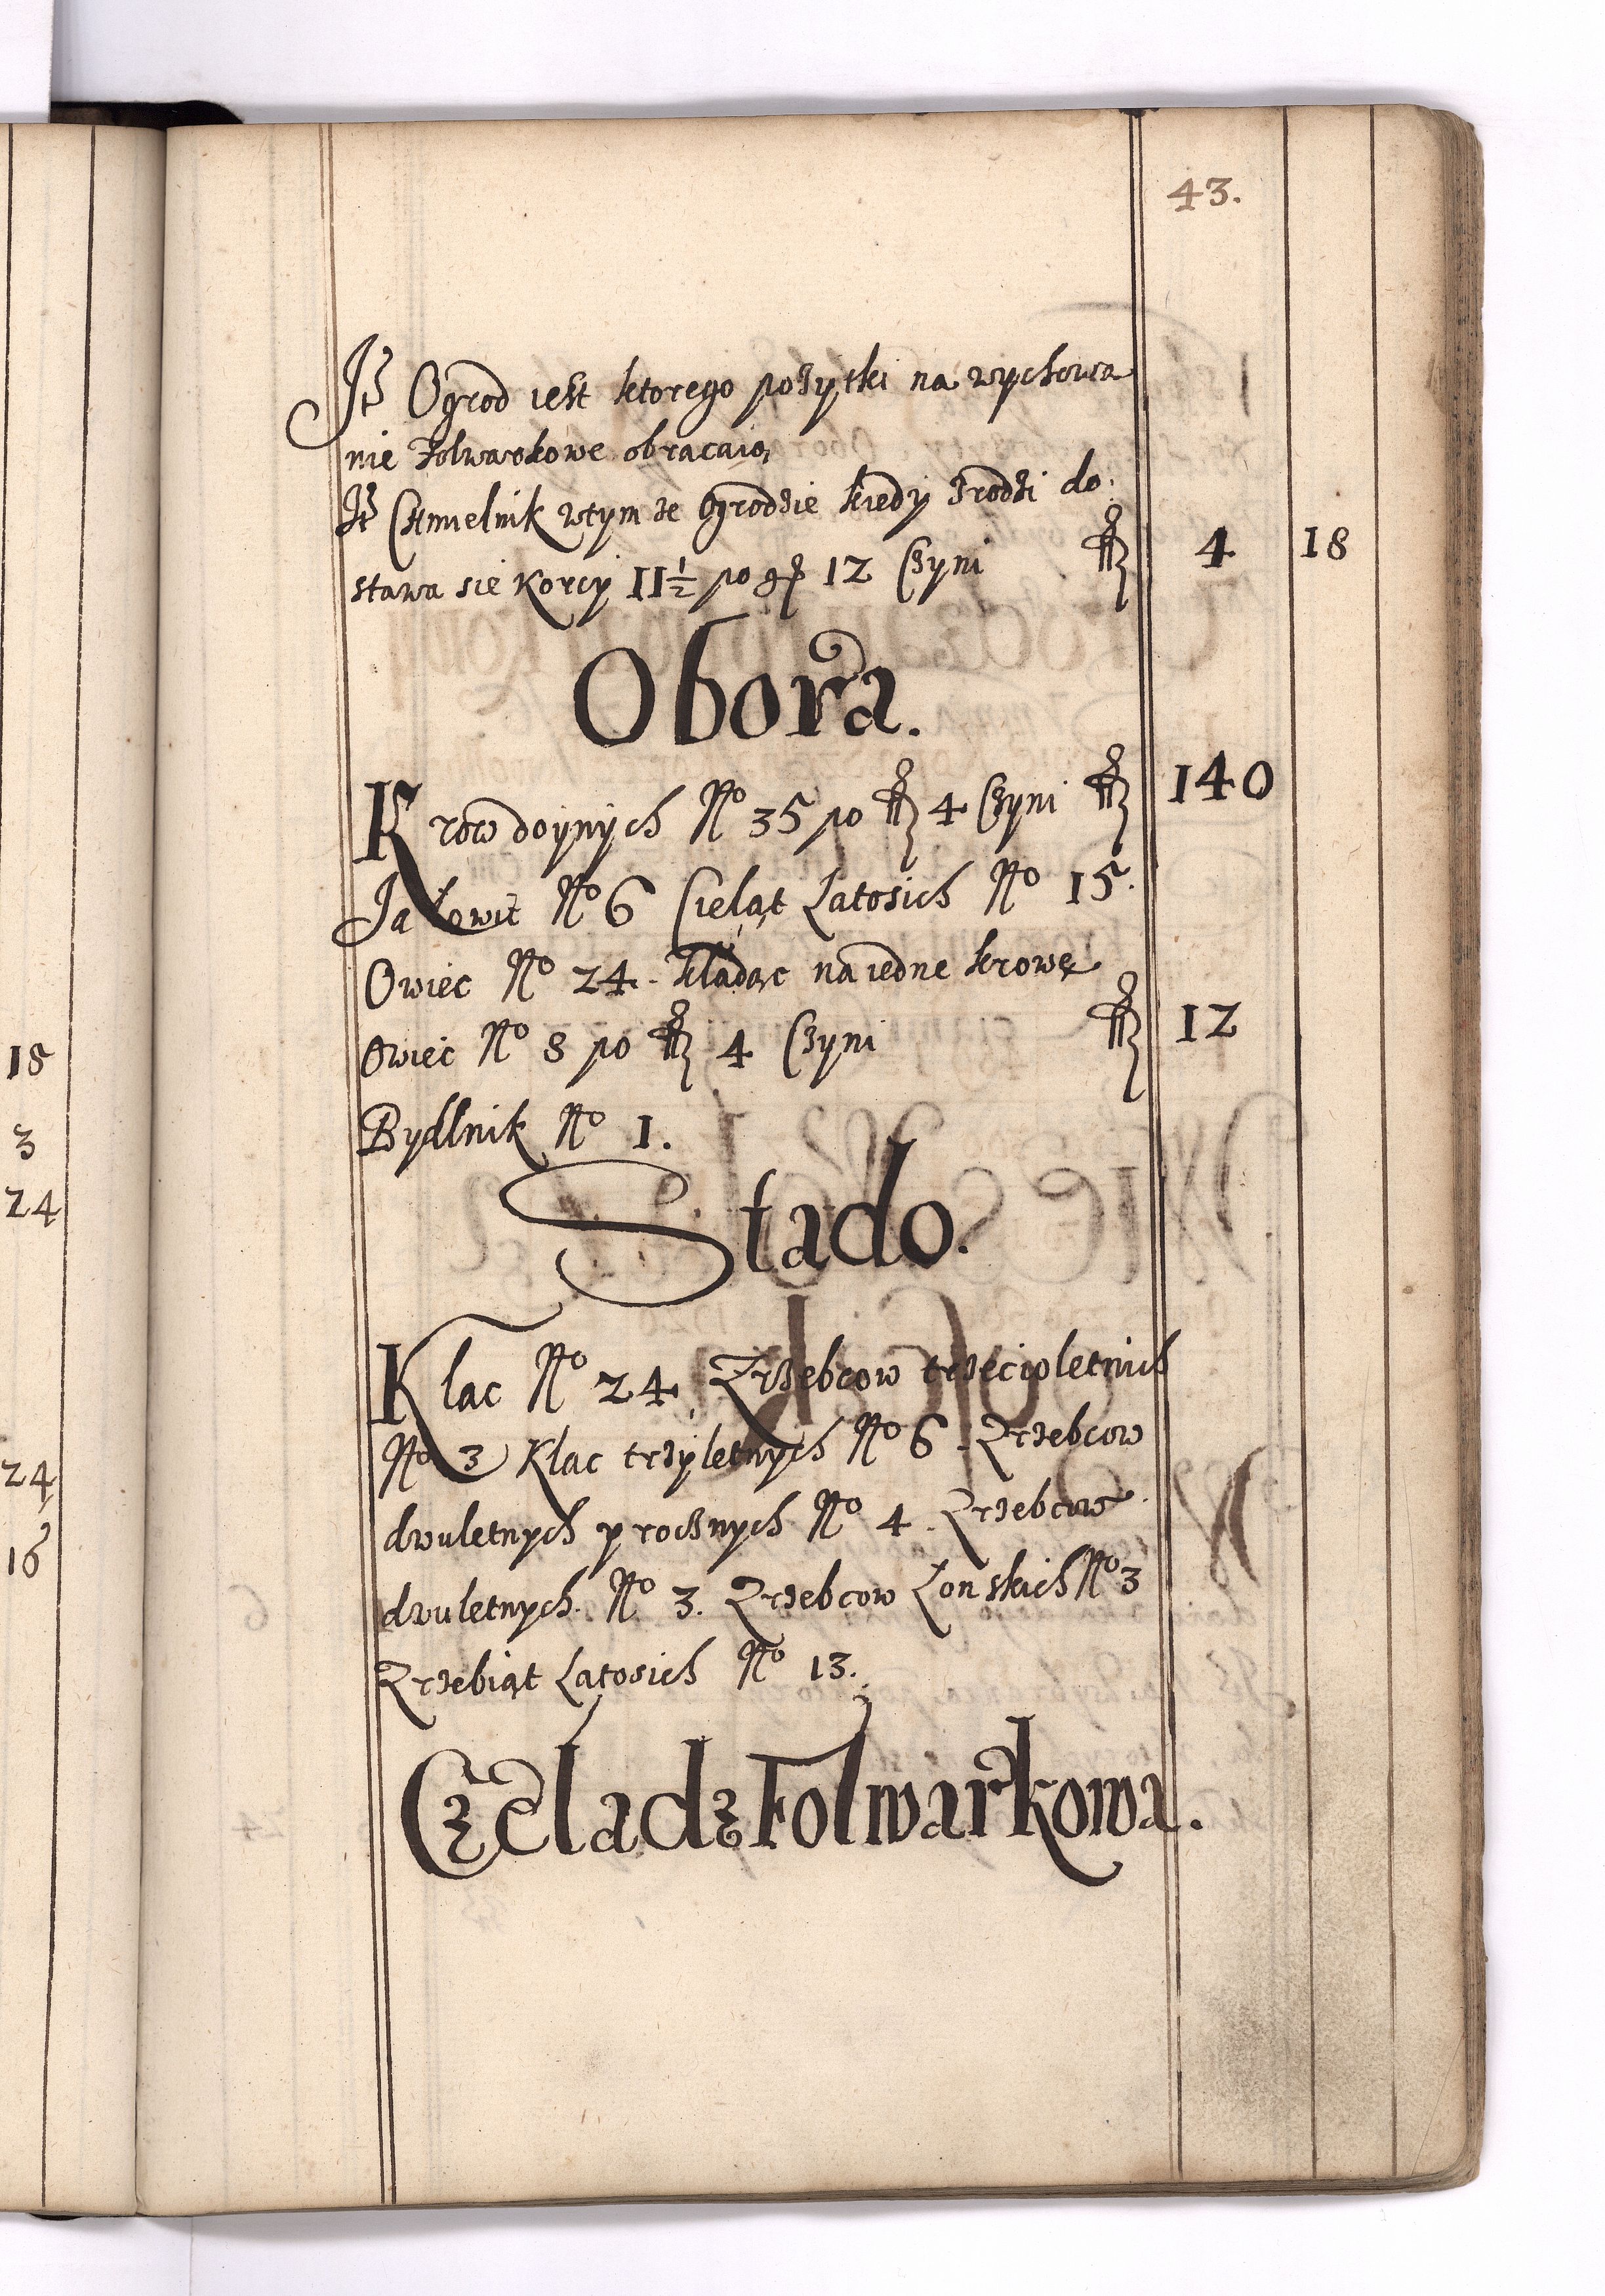 43.
Itẽ Ogrod iest ktorego pożytki na wychowa
nie folwarkowe obracaią
Itẽ Chmielnik wtym że Ogrodzie kiedy zrodzi do:
stawa sie Korcy 11½ po gr 12 Czyni fl 4 18
Obora.
Krow doynych No 35 po fl 4 Czyni fl 140
Jałowic No 6 Cieląt Latosich No 15.
Owiec No 24. kładąc na iedne krowę
Owiec No 8 po fl 4 Czyni fl 12
Bydlnik No 1.
Stado.
Klac No 24 Zrzebcow trzecioletnich
No 3 Klac trzyletnych No 6. Zrzebcow
dwuletnych procznych No 4. Zrzebcow
dwuletnych. No 3. Zrzebcow Łonskich No 3
Zrzebiąt Latosich No 13.
Czeladz Folwarkowa.
18
3
24
24
16